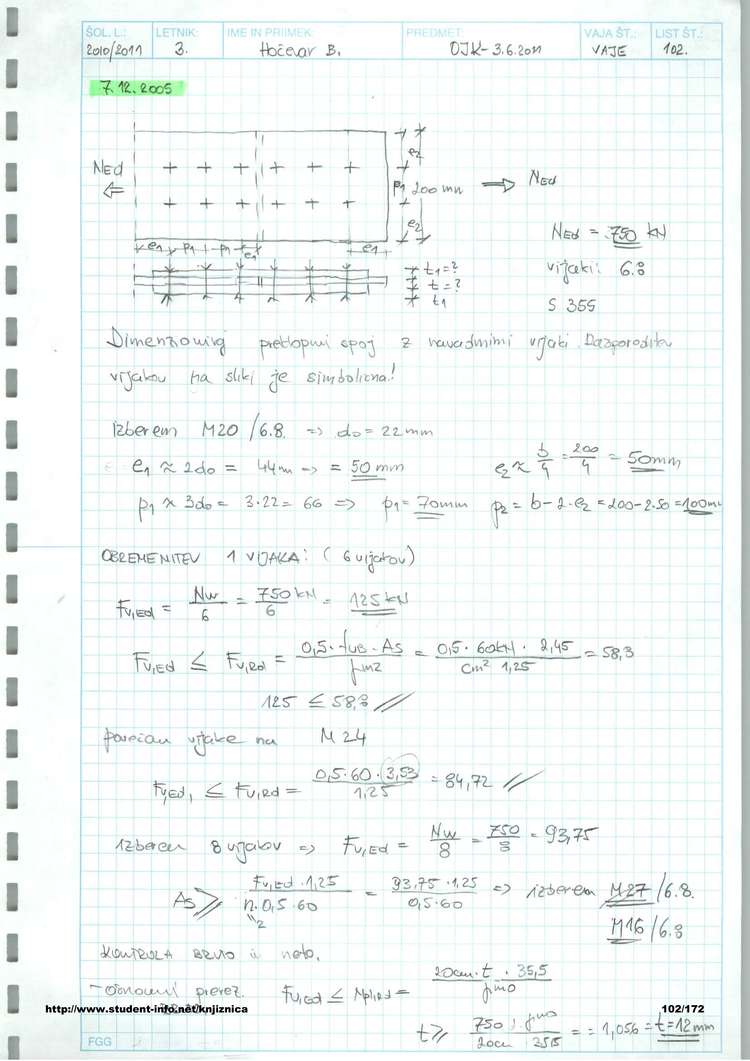 ŠOL. L.: LETNIK: IME IN PRIIMEK: PREDMET: VAJA ŠT.: LIST ŠT.:
2010/2011 3. Hočevar B. OJK - 3.6.2011 VAJE 102.
7.12.2005
NEd
e2
p1 200 mm
e2
NEd
e1 p1 p1 e1 e1
NEd = 750 kN
t1=?
t=?
t1
vijaki: 6.8
S 355
Dimenzioniraj preklopni spoj z navadnimi vijaki. Razporeditev
vijakov na sliki je simbolična!
izberem M20 /6.8. => do = 22 mm
e1 ≈ 2do = 44m => = 50 mm
e2 ≈ b/4 = 200/4 = 50mm
p1 ≈ 3do = 3·22 = 66 => p1 = 70mm p2 = b - 2·e2 = 200 - 2·50 = 100mm
OBREMENITEV 1 VIJAKA: (6 vijakov)
Fv,Ed = Nw/6 = 750 kN/6 = 125 kN
Fv,Ed ≤ Fv,Rd = 0,5·fub·As/γm2 = 0,5·60kN·2,45/cm² 1,25 = 58,3
125 ≤ 58,8 //
povečam vijake na M24
Fv,Ed, ≤ Fv,Rd = 0,5·60·3,53/1,25 = 84,72 //
izberem 8 vijakov => Fv,Ed = Nw/8 = 750/8 = 93,75
As ≥ Fv,Ed·1,25/n·0,5·60 = 93,75·1,25/0,5·60 => izberem M27/6.8.
"2
M16/6.8
KONTROLA BRUTO in neto.
- Osnovni prerez. Fv,Ed ≤ Npl,Rd = 20cm·t·35,5/γm0
http://www.student-info.net/knjiznica 102/172
t ≥ 750·γm0/20cm 35,5 = = 1,056 = t = 12mm
FGG